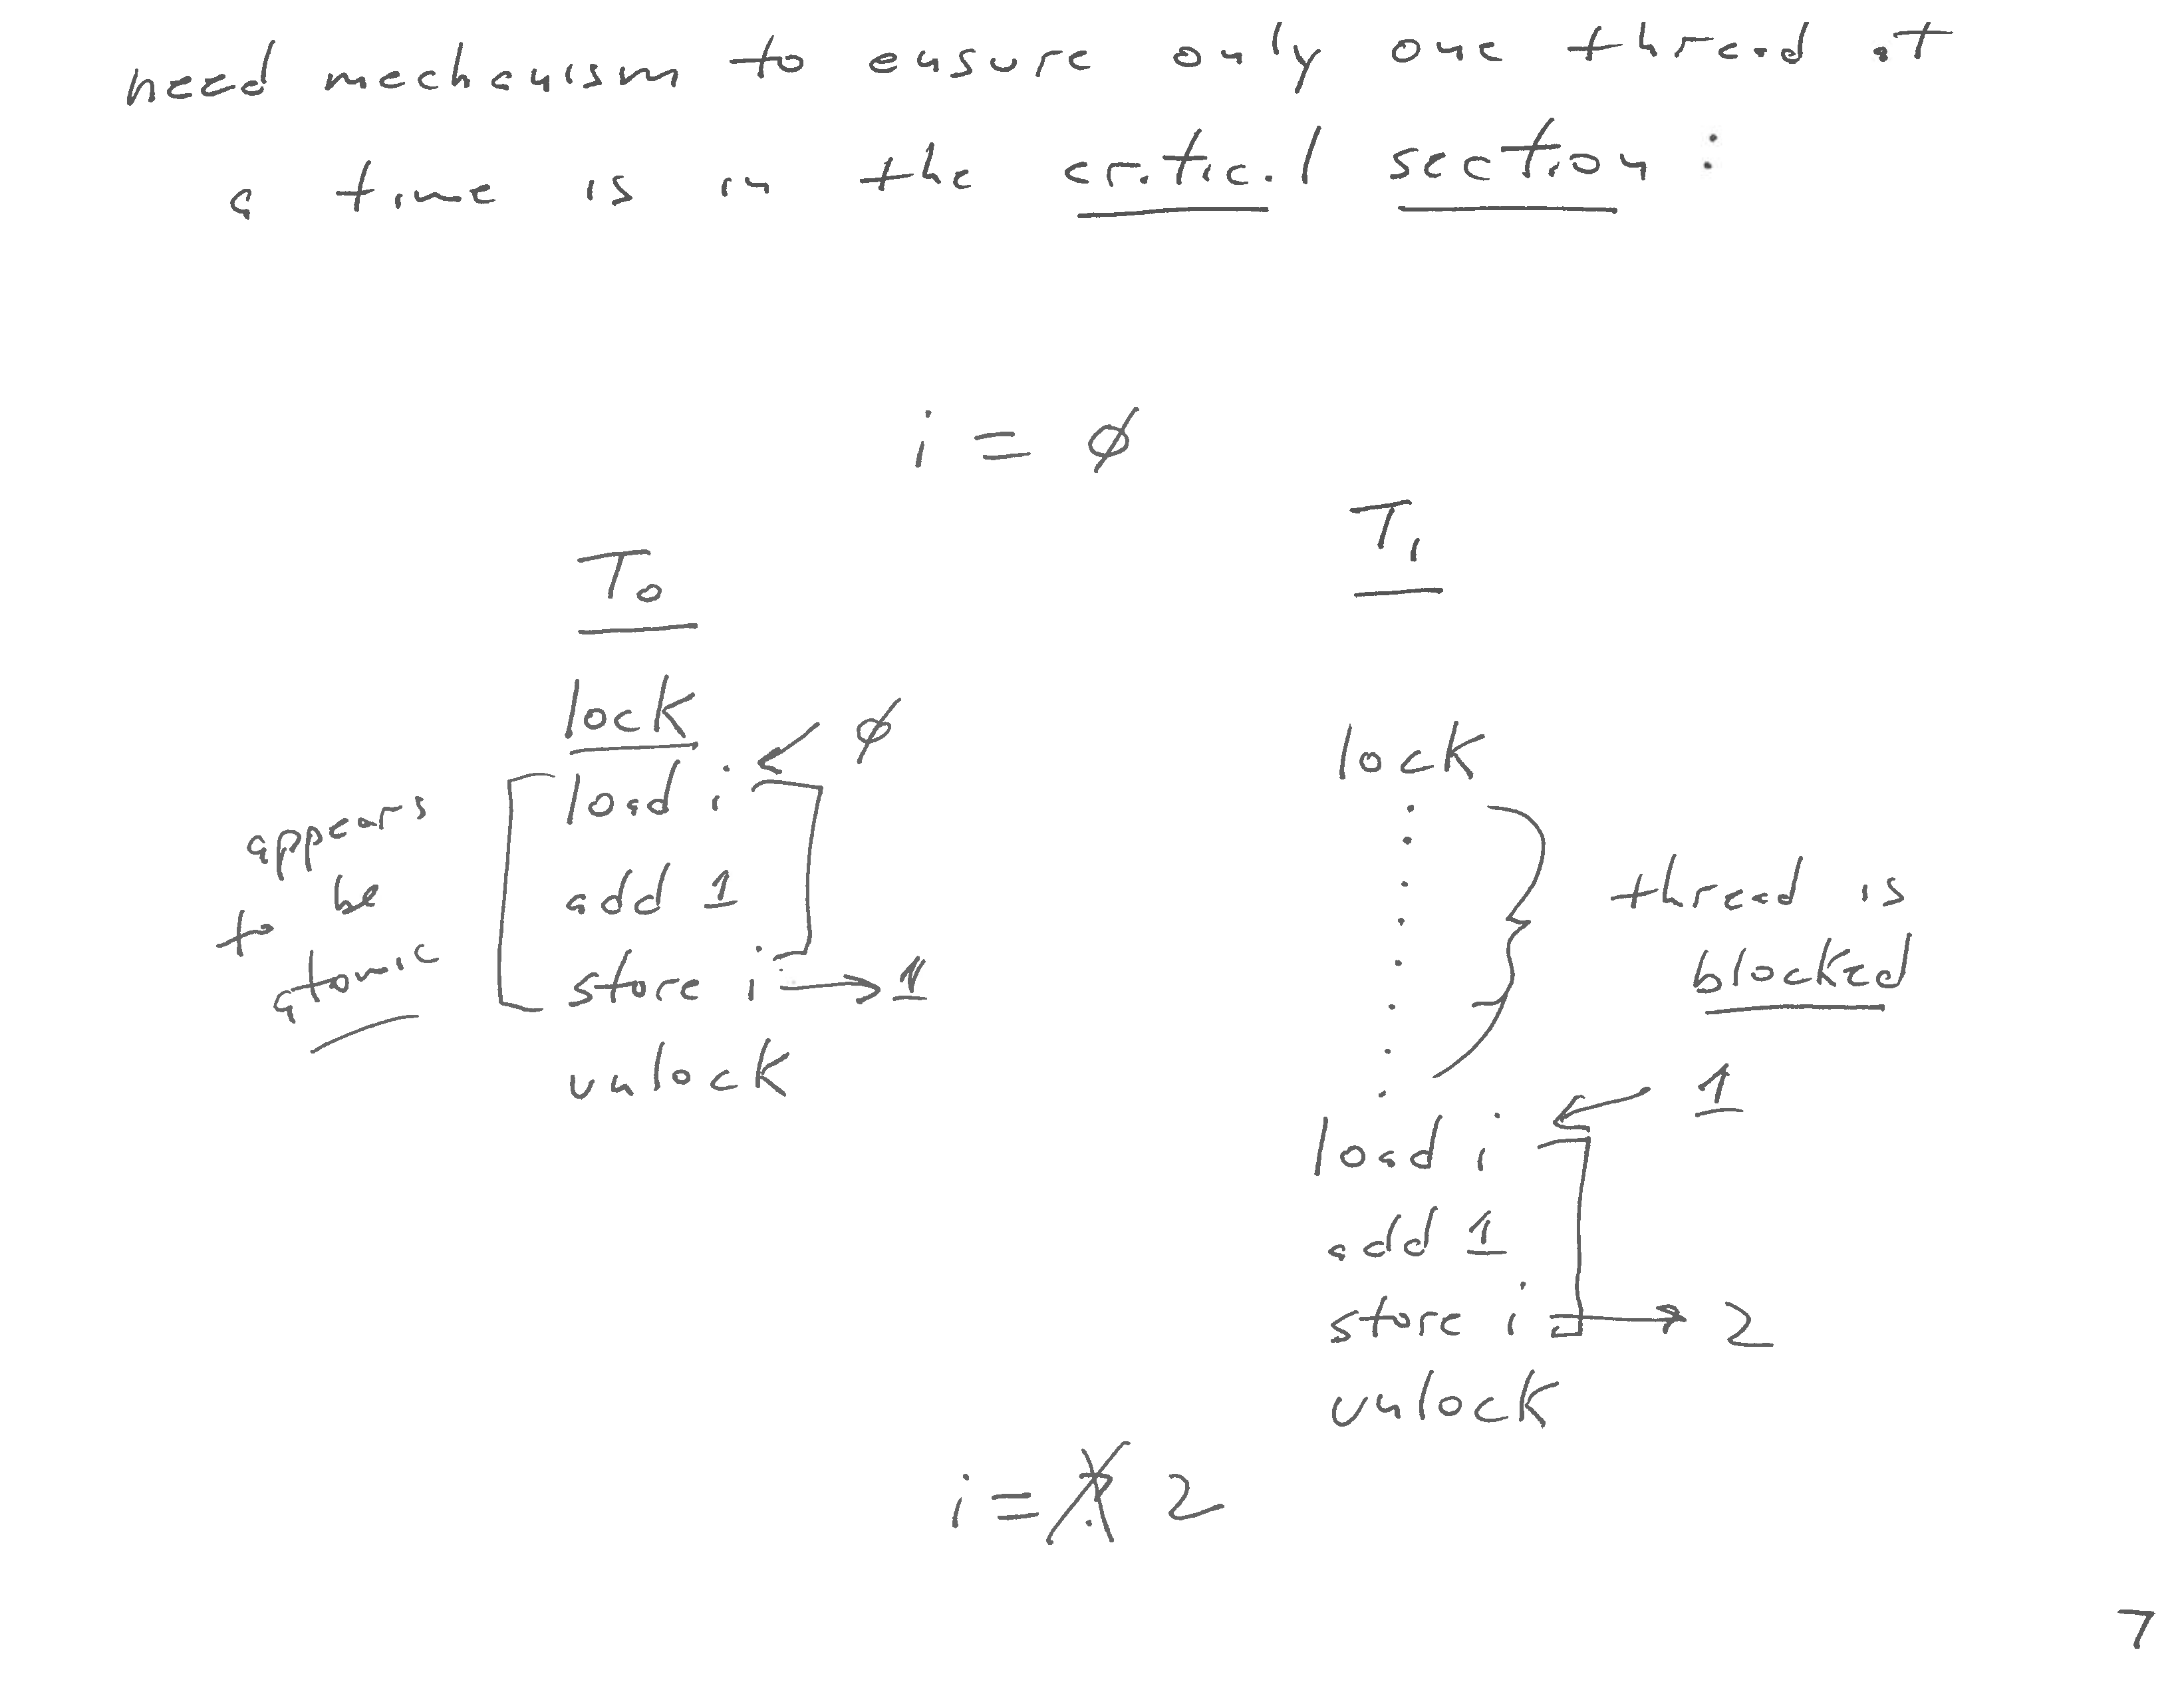 need mechanism to ensure only one thread at
a time is in the critical section :
i = ∅
T0
T1
lock
∅
load i
add 1
store i → 1
unlock
appears
to be
atomic
lock
thread is
blocked
1
load i
add 1
store i → 2
unlock
i = 2
7